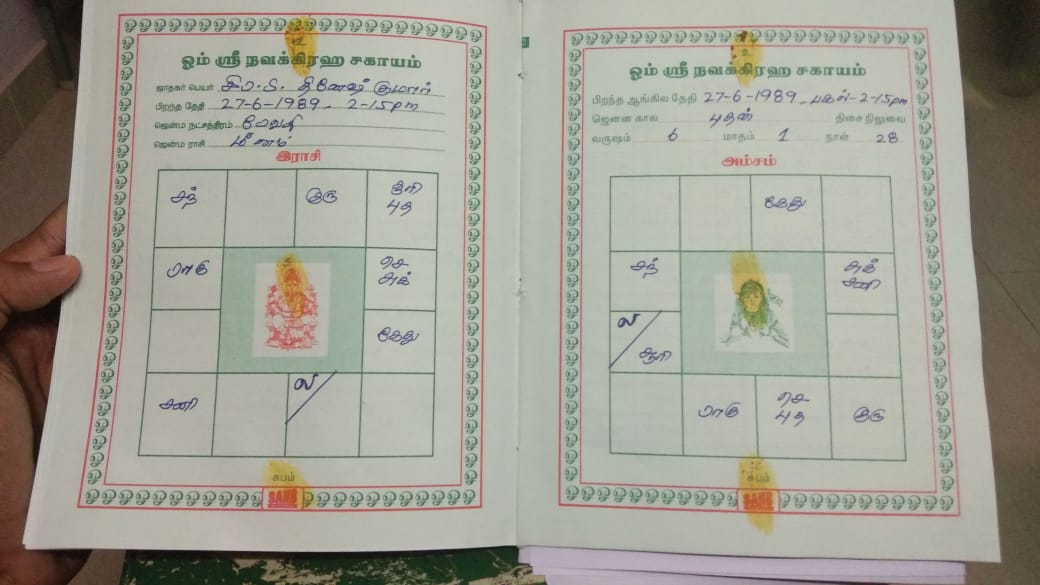 உ
ஓம் ஸ்ரீ நவக்கிரஹ சகாயம்
ஜாதகர் பெயர் தினேஷ் குமார்
பிறந்த தேதி 27-6-1989 - 2-15pm
ஜென்ம நட்சத்திரம் ரேவதி
ஜென்ம ராசி மீனம்
இராசி
சந்
குரு
சூரி
புத
ராகு
செ
சுக்
கேது
சனி
ல
சுபம்
SANB
உ
ஓம் ஸ்ரீ நவக்கிரஹ சகாயம்
பிறந்த ஆங்கில தேதி 27-6-1989 - பகல்-2-15pm
ஜெனன கால புதன் திசை நிலுவை
வருஷம் 6 மாதம் 1 நாள் 28
அம்சம்
கேது
சந்
சுக்
சனி
ல
சூரி
ராகு
செ
புத
குரு
சுபம்
SANB